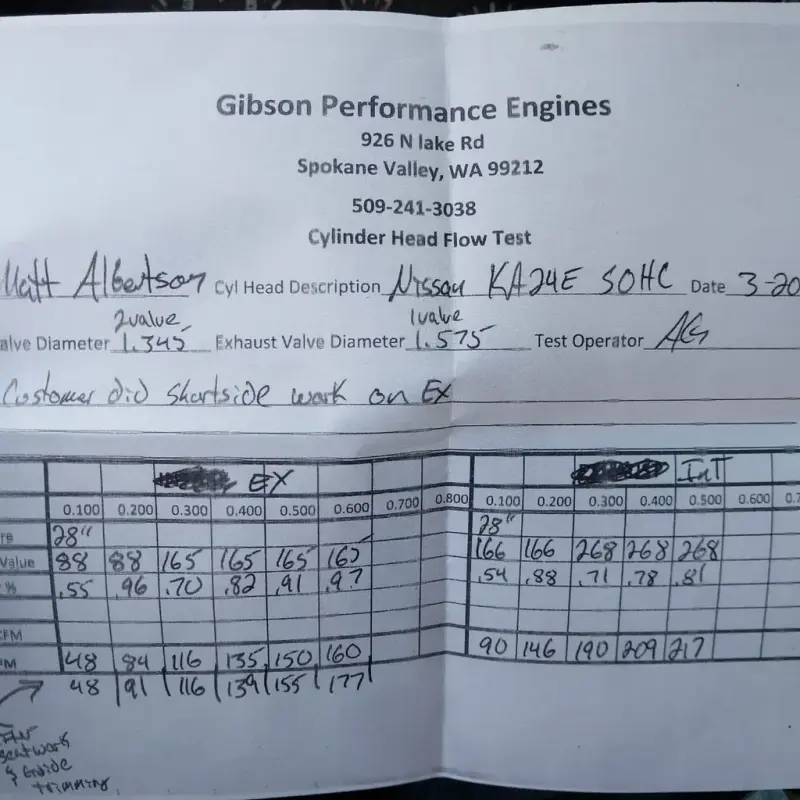 Gibson Performance Engines
926 N lake Rd
Spokane Valley, WA 99212
509-241-3038
Cylinder Head Flow Test
Matt Albertson Cyl Head Description Nissan KA24E SOHC Date 3-20
2valve 1valve
alve Diameter 1.345 Exhaust Valve Diameter 1.575 Test Operator AG
Customer did shortside work on EX
EX InT
0.100 0.200 0.300 0.400 0.500 0.600 0.700 0.800 0.100 0.200 0.300 0.400 0.500 0.600 0.7
re 28" 28"
Value 88 88 165 165 165 165 166 166 268 268 268
% .55 .96 .70 .82 .91 .97 .54 .88 .71 .78 .81
CFM
FM 48 84 116 135 150 160 90 146 190 209 217
48 91 116 139 155 177
seatwork
& Guide
trimming